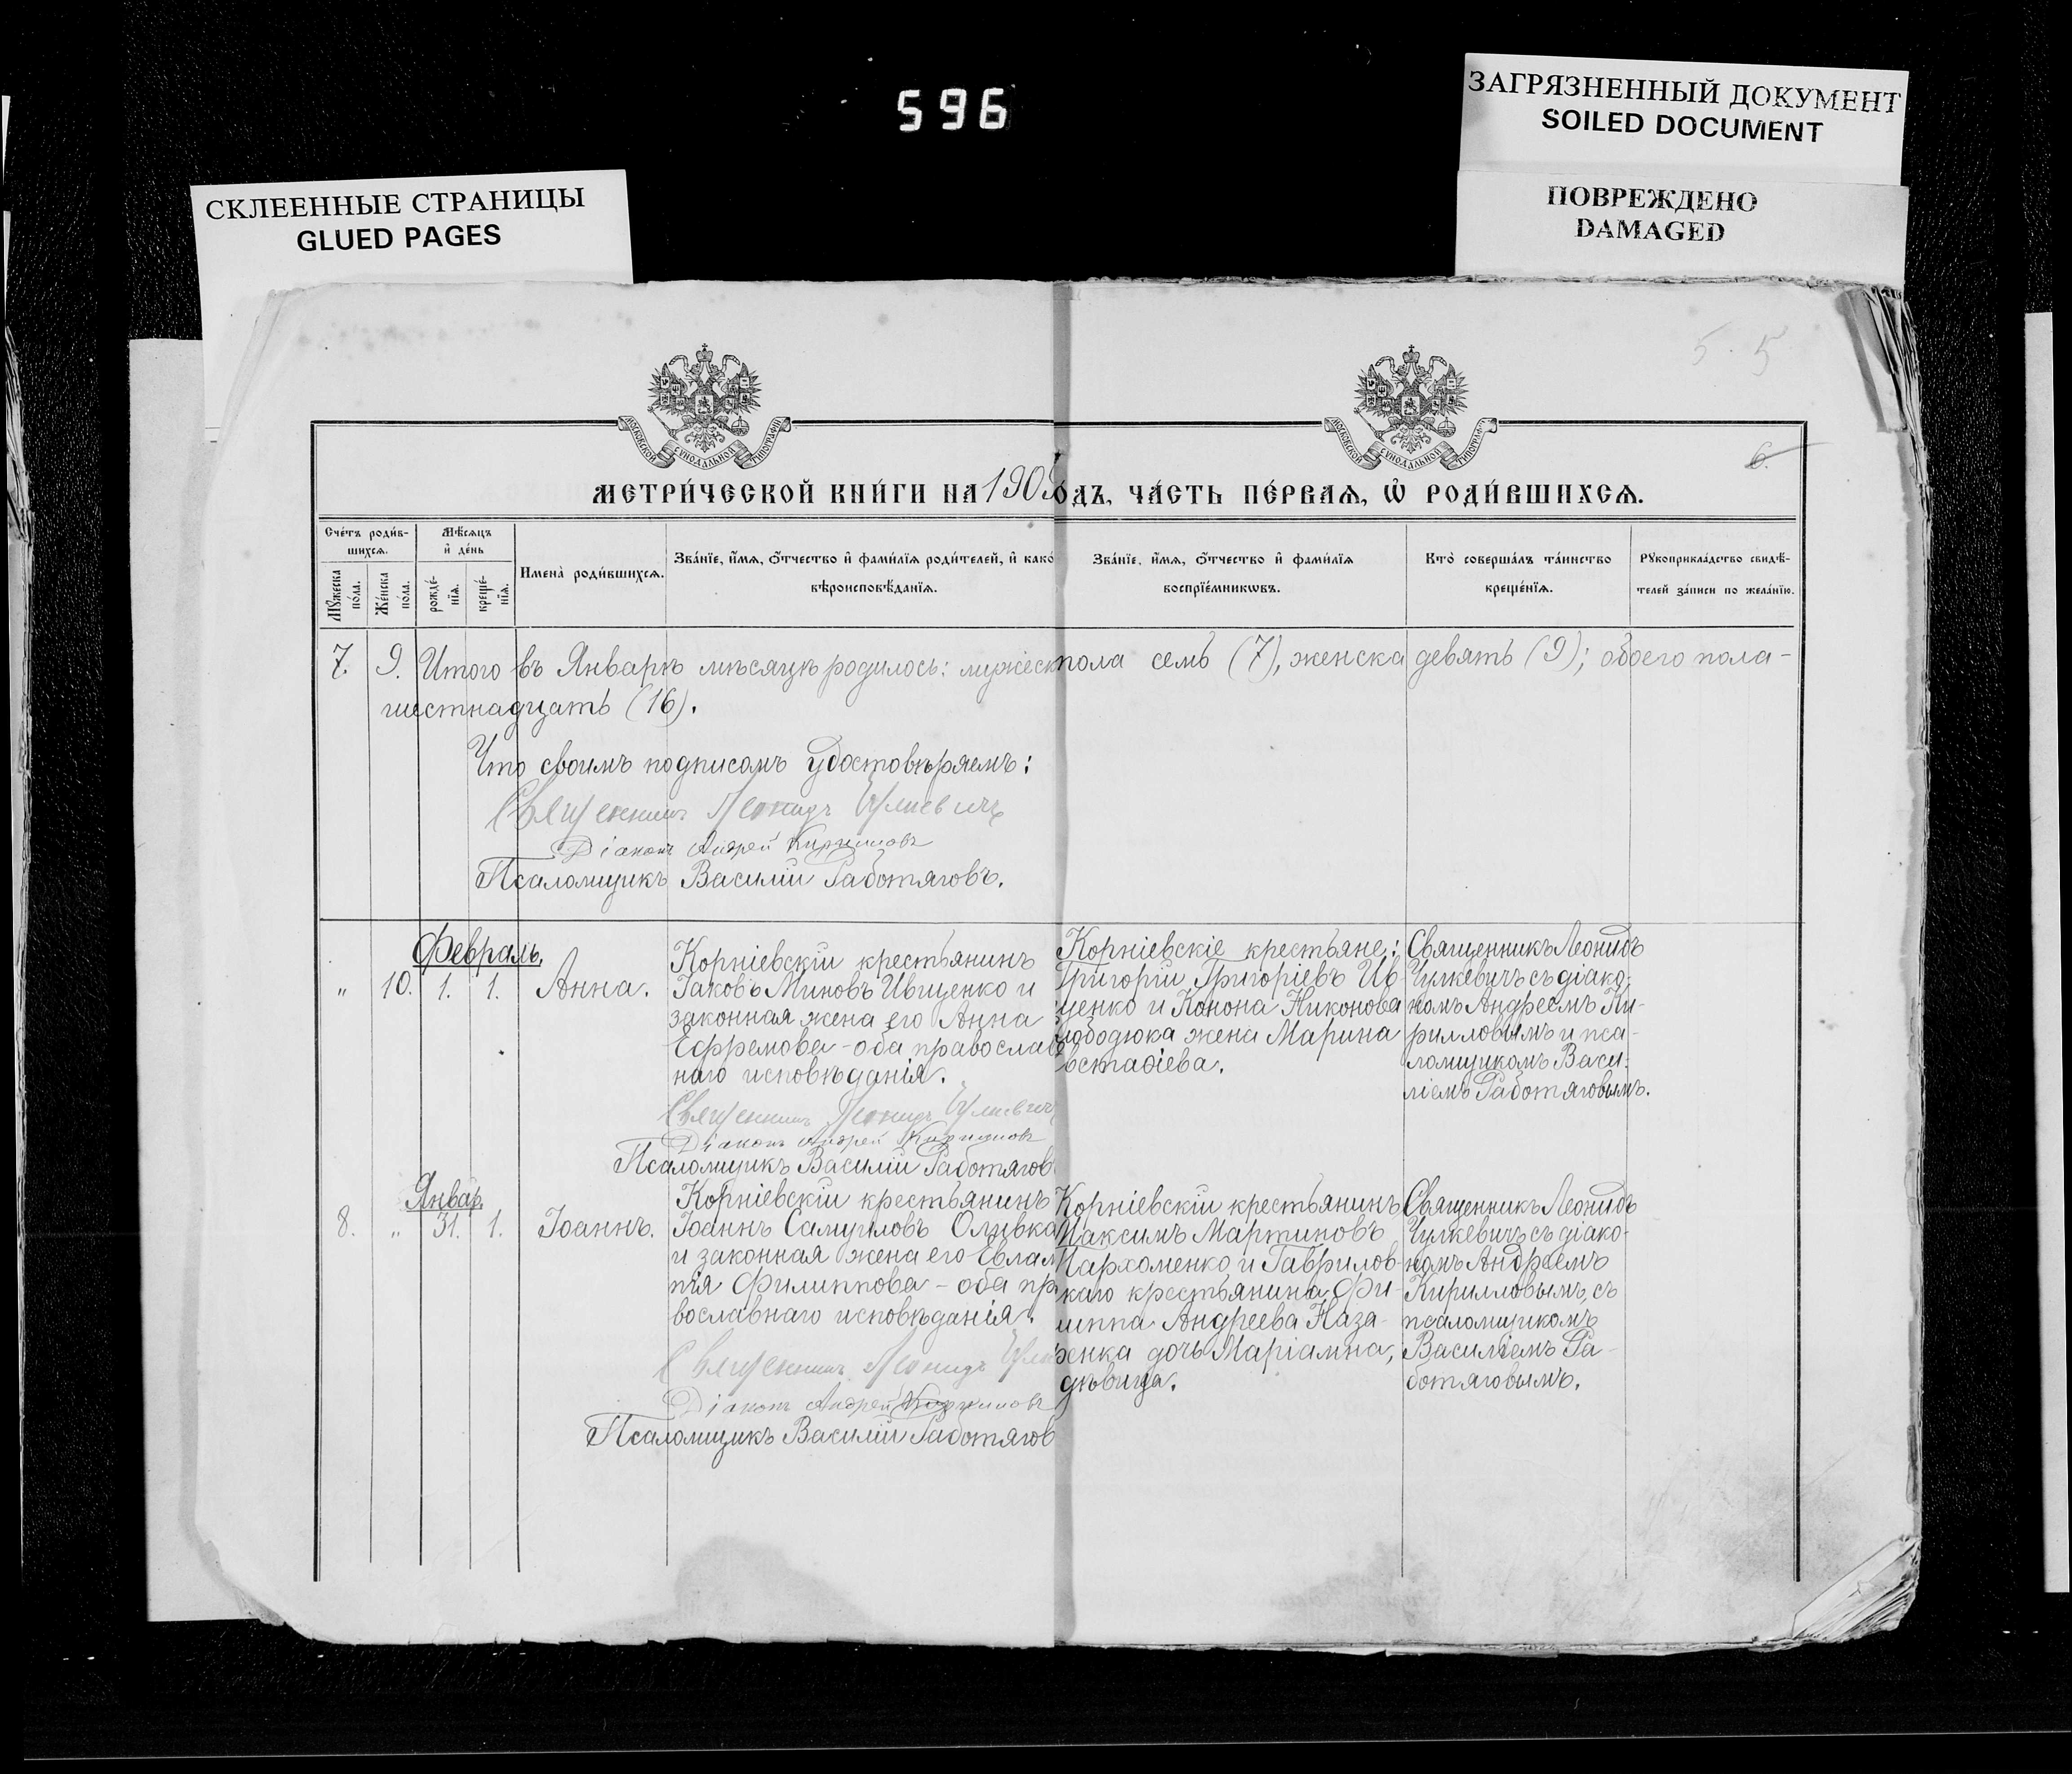 596
ЗАГРЯЗНЕННЫЙ ДОКУМЕНТ
SOILED DOCUMENT
ПОВРЕЖДЕНО
DAMAGED
СКЛЕЕННЫЕ СТРАНИЦЫ
GLUED PAGES
5. 5
6.
МОСКОВСКОЙ СУНОДАЛЬНОЙ ТИПОГРАФІИ
МОСКОВСКОЙ СУНОДАЛЬНОЙ ТИПОГРАФ
МЕТРИ́ЧЕСКОЙ КНИ́ГИ НА 190 одъ, ЧА́СТЬ ПЕ́РВАѦ, Ѽ РОДИ́ВШИХСѦ.
Сче́тъ роди́в-
шихсѧ.
Мѣ́сѧцъ
и҆ де́нь
Мꙋ́жеска
по́ла.
Же́нска
по́ла.
рожде́-
нїѧ.
креще́-
нїѧ.
Имена̀ роди́вшихсѧ.
Зва́нїе, и҆́мѧ, ѻ҆́тчество и҆ фами́лїѧ роди́телей, и҆ како
вѣроисповѣ́данїѧ.
Зва́нїе, и҆́мѧ, ѻ҆́тчество и҆ фами́лїѧ
воспрїе́мникѡвъ.
Кто̀ соверша́лъ та́инство
креще́нїѧ.
Рꙋкоприкла́дство свидѣ́-
телей за́писи по жела́нїю.
7. 9. Итого въ Январѣ мѣсяцѣ родилось: мужеск пола семь (7), женска девять (9); обоего пола -
шестнадцать (16).
Что своимъ подписомъ удостовѣряемъ:
Священникъ Леонидъ Чулкевичъ
Діаконъ Андрей Кирилловъ
Псаломщикъ Василій Работяговъ.
Февраль.
„ 10. 1. 1. Анна.
Корніевскій крестьянинъ
Іаковъ Миновъ Ивщенко и
законная жена его Анна
Ефремова - оба православ
наго исповѣданія.
Священникъ Леонидъ Чулкевичъ
Діаконъ Андрей Кирилловъ
Псаломщикъ Василій Работягов
Корніевскіе крестьяне:
Григорій Григоріевъ Ив
щенко и Конона Никонова
лободюка жена Марина
встафіева.
Священникъ Леонидъ
Чулкевичъ съ діако-
номъ Андреемъ Ки-
рилловымъ и пса-
ломщикомъ Васи-
ліемъ Работяговымъ.
Январ.
8. „ 31. 1. Іоаннъ.
Корніевскій крестьянинъ
Іоаннъ Самуиловъ Оливка
и законная жена его Евлам
пія Филиппова - оба пр
вославнаго исповѣданія.
Священникъ Леонидъ Чулк
Діаконъ Андрей Кирилловъ
Псаломщикъ Василій Работягов
Корніевскій крестьянинъ
Максимъ Мартиновъ
Пархоменко и Гаврилов-
каго крестьянина Фи-
липпа Андреева Наза-
ренка дочь Маріамна,
дѣвица.
Священникъ Леонидъ
Чулкевичъ съ діако-
номъ Андреемъ
Кирилловымъ, съ
псаломщикомъ
Василіемъ Ра-
ботяговымъ.